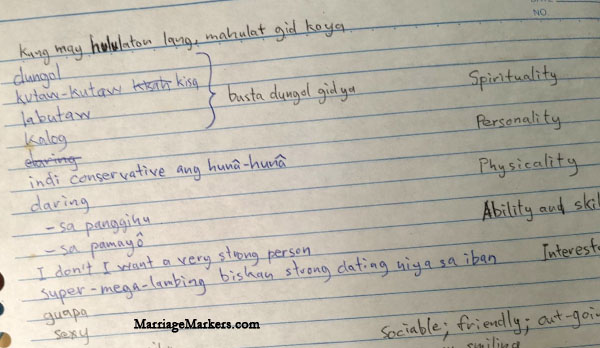 DATE
NO.
Kung may hulaton lang, mahulat gid koya
dungol
kutaw-kutaw kisa
labutaw
busta dungol gid ya
kalog
daring
indi conservative ang hunâ-hunâ
daring
-sa panggihu
-sa pamayô
I don't I want a very strong person
super-mega-lambing biskan strong dating niya sa iban
guapa
sexy
Spirituality
Personality
Physicality
Ability and skil
Interests
Sociable; friendly; out-goin
smiling
MarriageMarkers.com